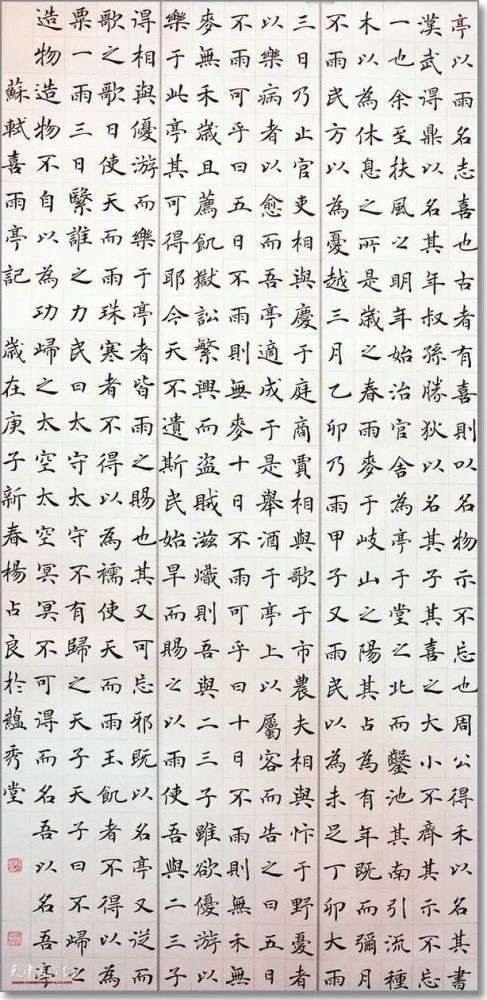 亭以雨名志喜也古者有喜則以名物示不忘也周公得禾以名其書
漢武得鼎以名其年叔孫勝狄以名其子其喜之大小不齊其示不忘
一也余至扶風之明年始治官舍為亭于堂之北而鑿池其南引流種
木以為休息之所是歲之春雨麥于岐山之陽其占為有年既而彌月
不雨民方以為憂越三月乙卯乃雨甲子又雨民以為未足丁卯大雨
三日乃止官吏相與慶于庭商賈相與歌于市農夫相與忭于野憂者
以樂病者以愈而吾亭適成于是舉酒于亭上以屬客而告之曰五日
不雨可乎曰五日不雨則無麥十日不雨可乎曰十日不雨則無禾無
麥無禾歲且薦飢獄訟繁興而盜賊滋熾則吾與二三子雖欲優游以
樂于此亭其可得耶今天不遺斯民始旱而賜之以雨使吾與二三子
得相與優游而樂于亭者皆雨之賜也其又可忘邪既以名亭又從而
歌之歌曰使天而雨珠寒者不得以為襦使天而雨玉飢者不得以為
粟一雨三日繄誰之力民曰太守太守不有歸之天子天子曰不歸之
造物造物不自以為功歸之太空太空冥冥不可得而名吾以名吾亭
蘇軾喜雨亭記 歲在庚子新春楊占良於蘊秀堂